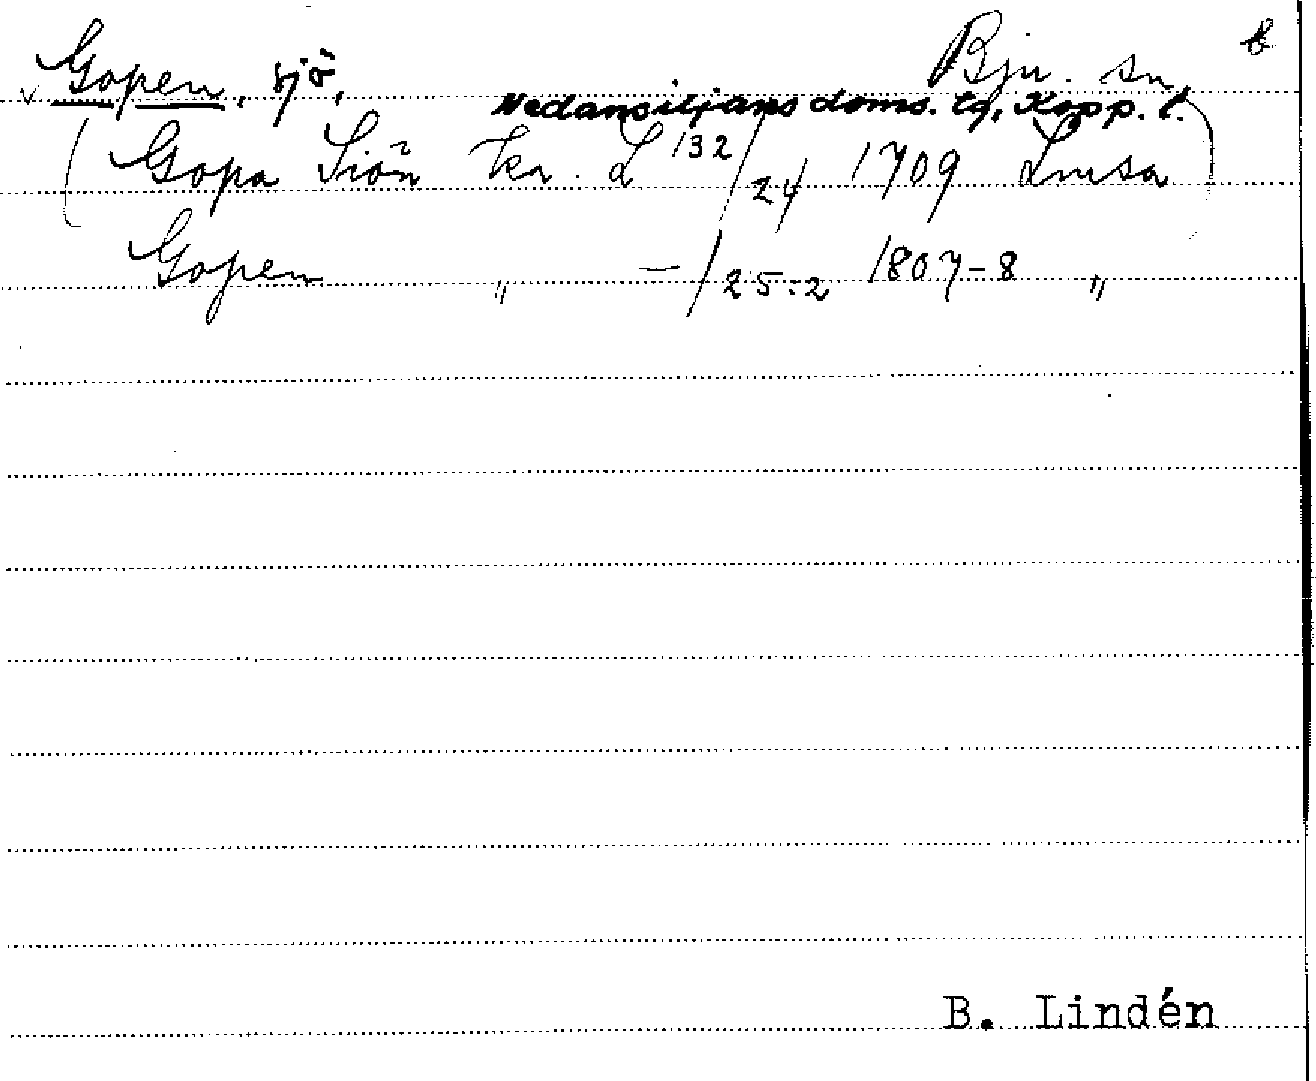 Gopen, sjö, Bju. sn
Nedansiljans doms. tg, Kopp. l.
(Gopa Siön kr. L 132/24 1709 Lmsa)
Gopen „ — /25:2 1807-8 „
B. Lindén